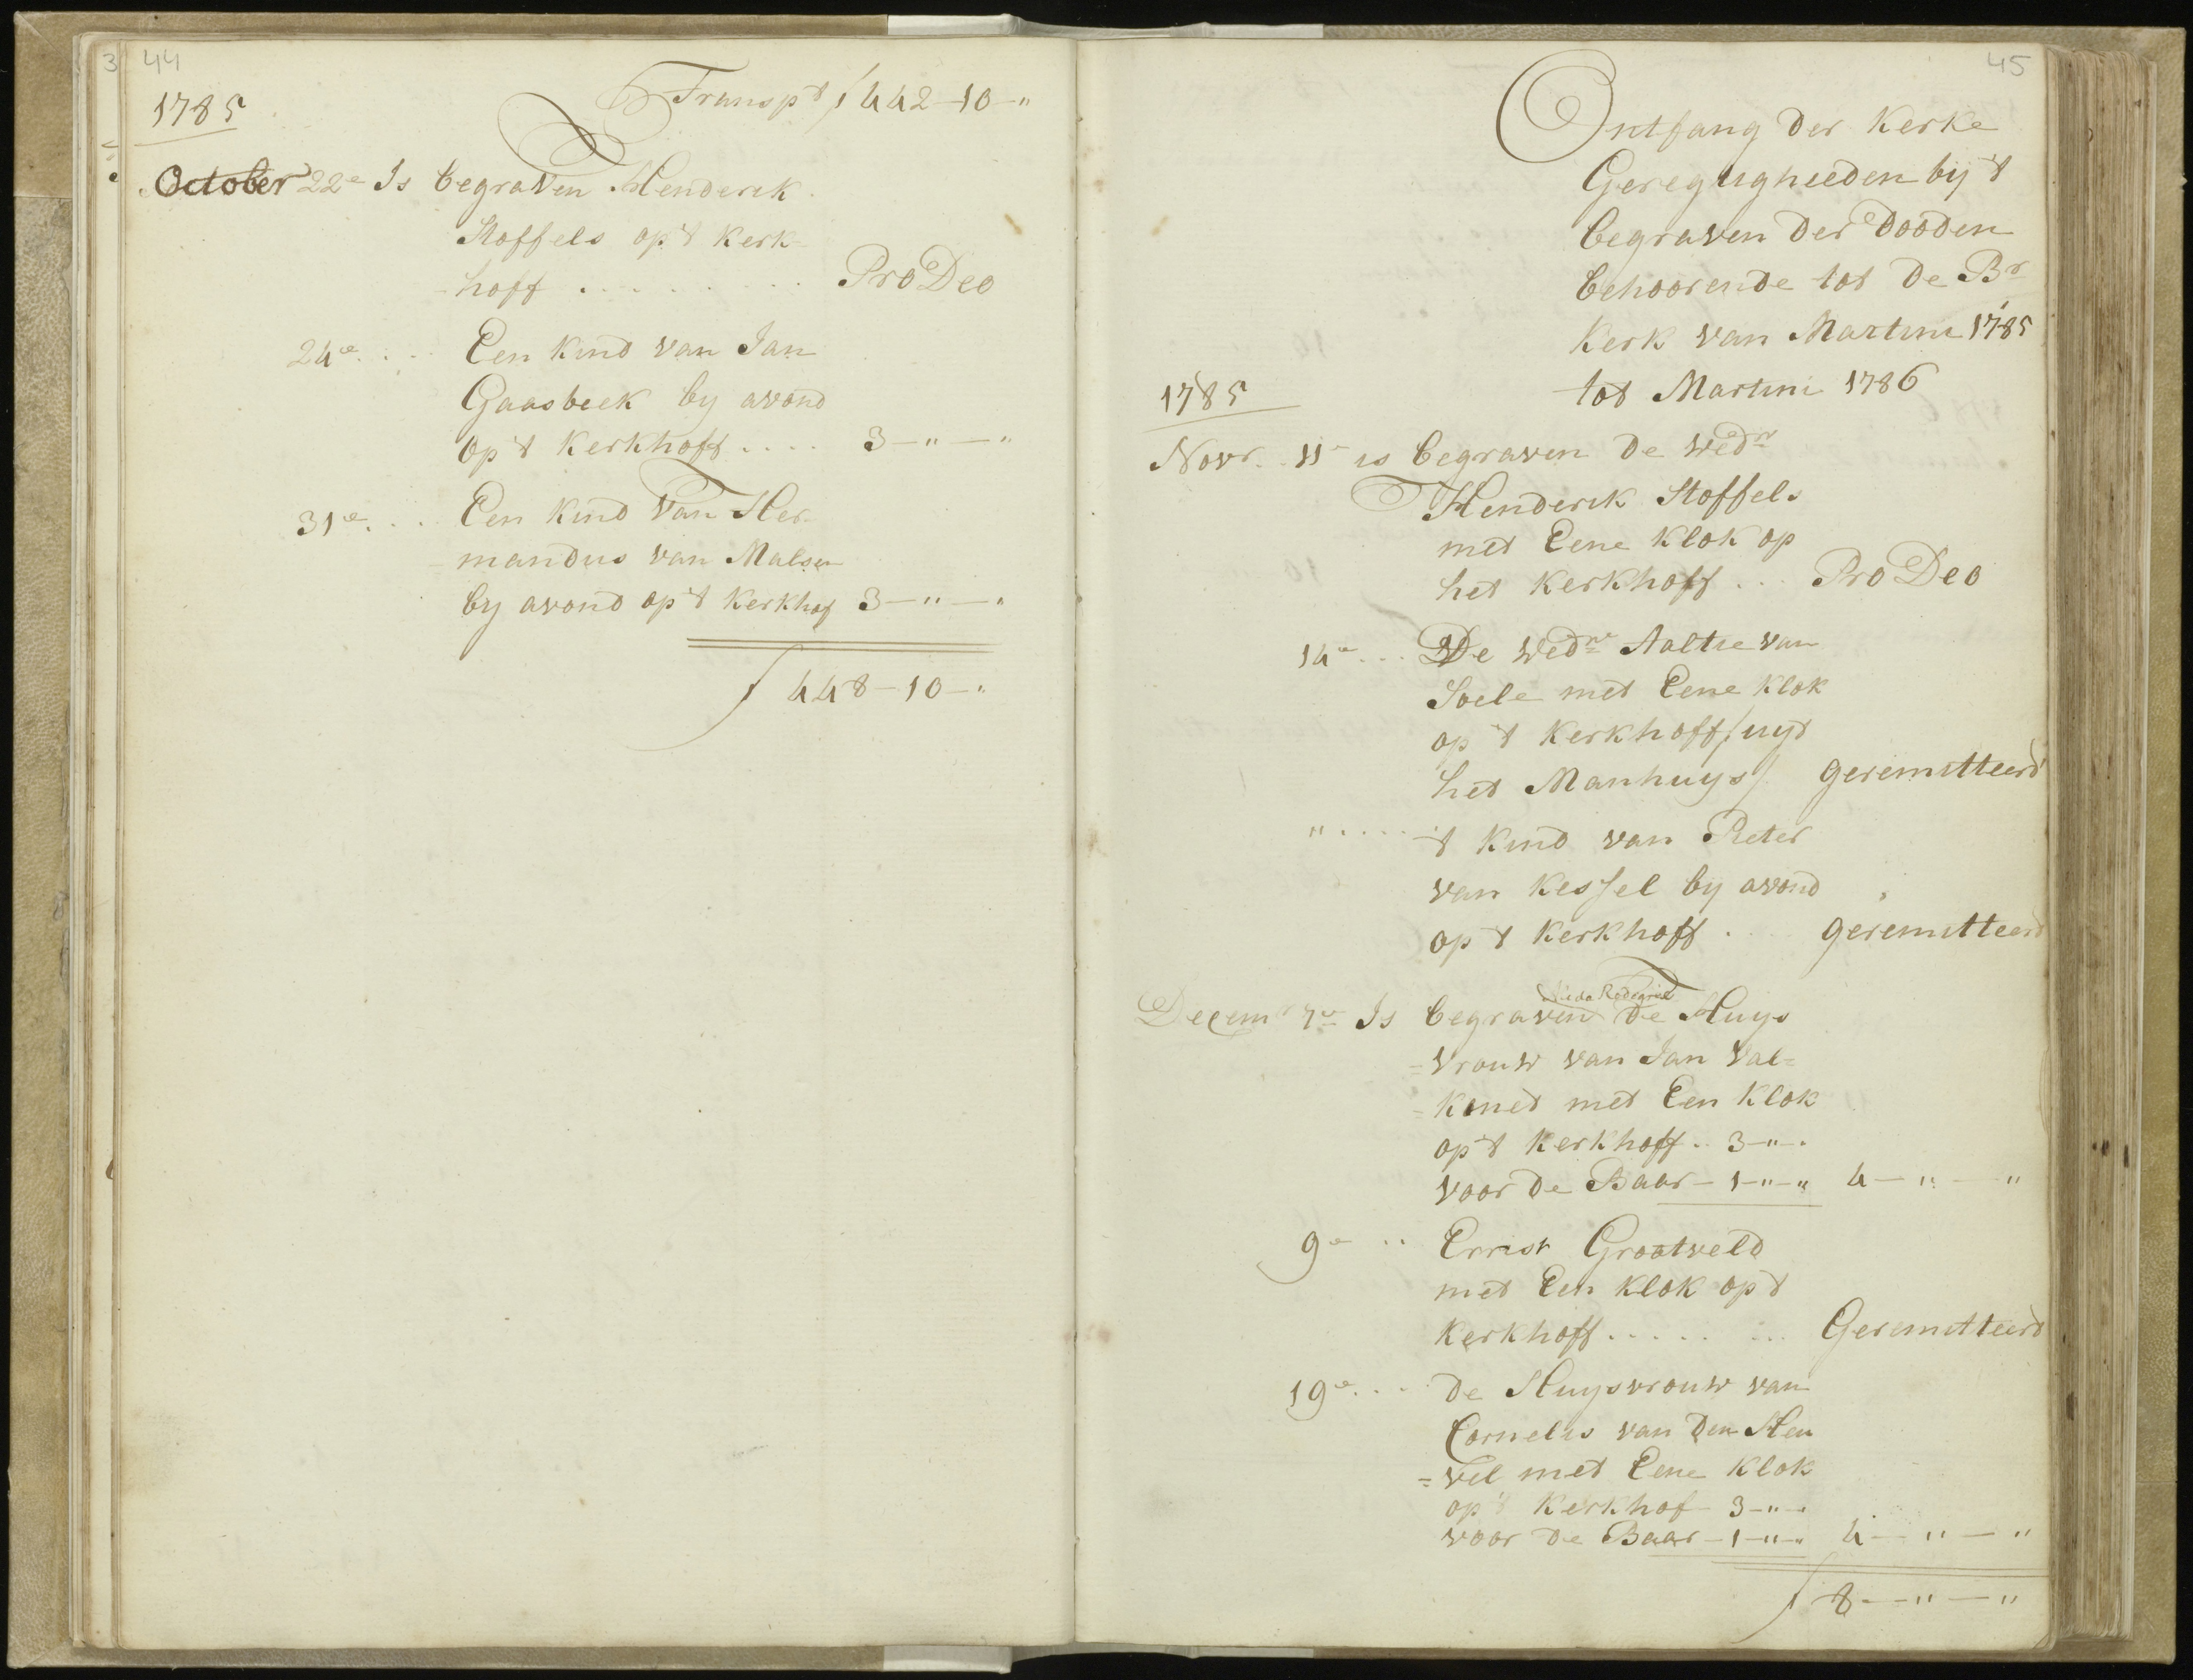 44
1785
Transpt ƒ 442-10-"
October 22e Is begraven Henderik
Stoffels op't Kerk-
hoff . . . . . . . . . Pro Deo
24e. . . Een Kind van Jan
Gaasbeek by avond
op't Kerkhoff . . . . 3-"-"
31e. . . Een Kind van Her-
mandus van Malsen
by avond op't Kerkhof 3-"-"
ƒ 448-10-"
45
Ontfang der Kerke
Geregtigheeden bij't
begraven der Dooden
behoorende tot de Br
Kerk van Martini 1785
tot Martini 1786
1785
Novr. 11e is begraven de Wedr
Henderik Stoffels
met Eene Klok op
het Kerkhoff . . . Pro Deo
14e . . . De Wedre Aaltie van
Soele met Eene Klok
op 't Kerkhoff /uyt
het Manhuys/ Geremitteerd
" . . . . . 't Kind van Pieter
van Kessel by avond
op 't Kerkhoff . . . geremitteerd
Decemr 7e Is begraven de Huys
=vrouw van Jan Val=
-Kenet met Een Klok
op't Kerkhoff . . 3-"-"
voor de Baar - 1-"-" 4-"-"
9e . . Ernst Grootveld
met Een Klok op't
Kerkhoff . . . . . . . . Geremitteerd
19e. . . . De Huysvrouw van
Cornelis van den Heu
=vel met Eene Klok
op't Kerkhof - 3-"-"
voor de Baar - 1-"-" 4-"-"
ƒ 8-"-"